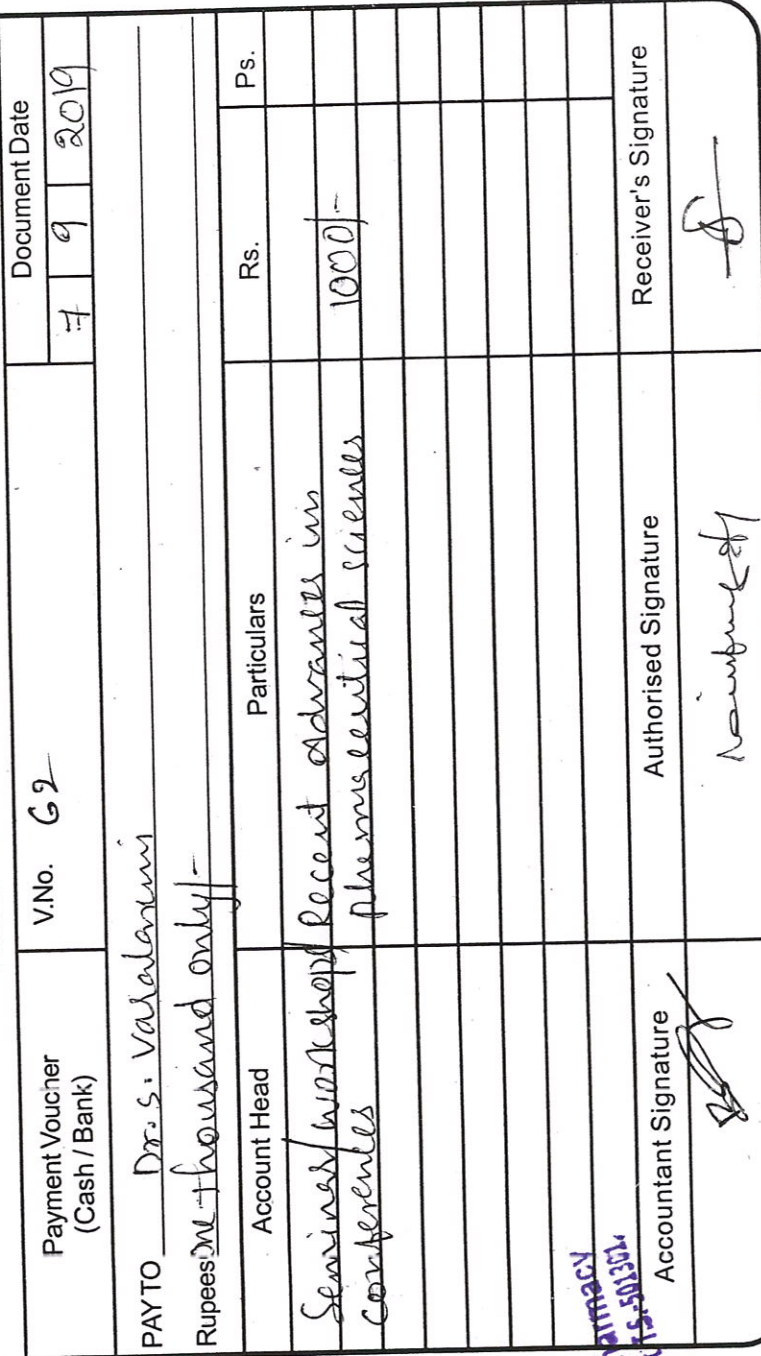 Payment Voucher
(Cash / Bank)
V.No. 62
Document Date
7 9 2019
PAY TO Dr. S.
Rupees One thousand only/-
Account Head
Particulars
Rs.
Ps.
Seminar/workshop/
conferences
Recent Advances in
pharmaceutical sciences
1000/-
Accountant Signature
Authorised Signature
Receiver's Signature
T.S.-501301.